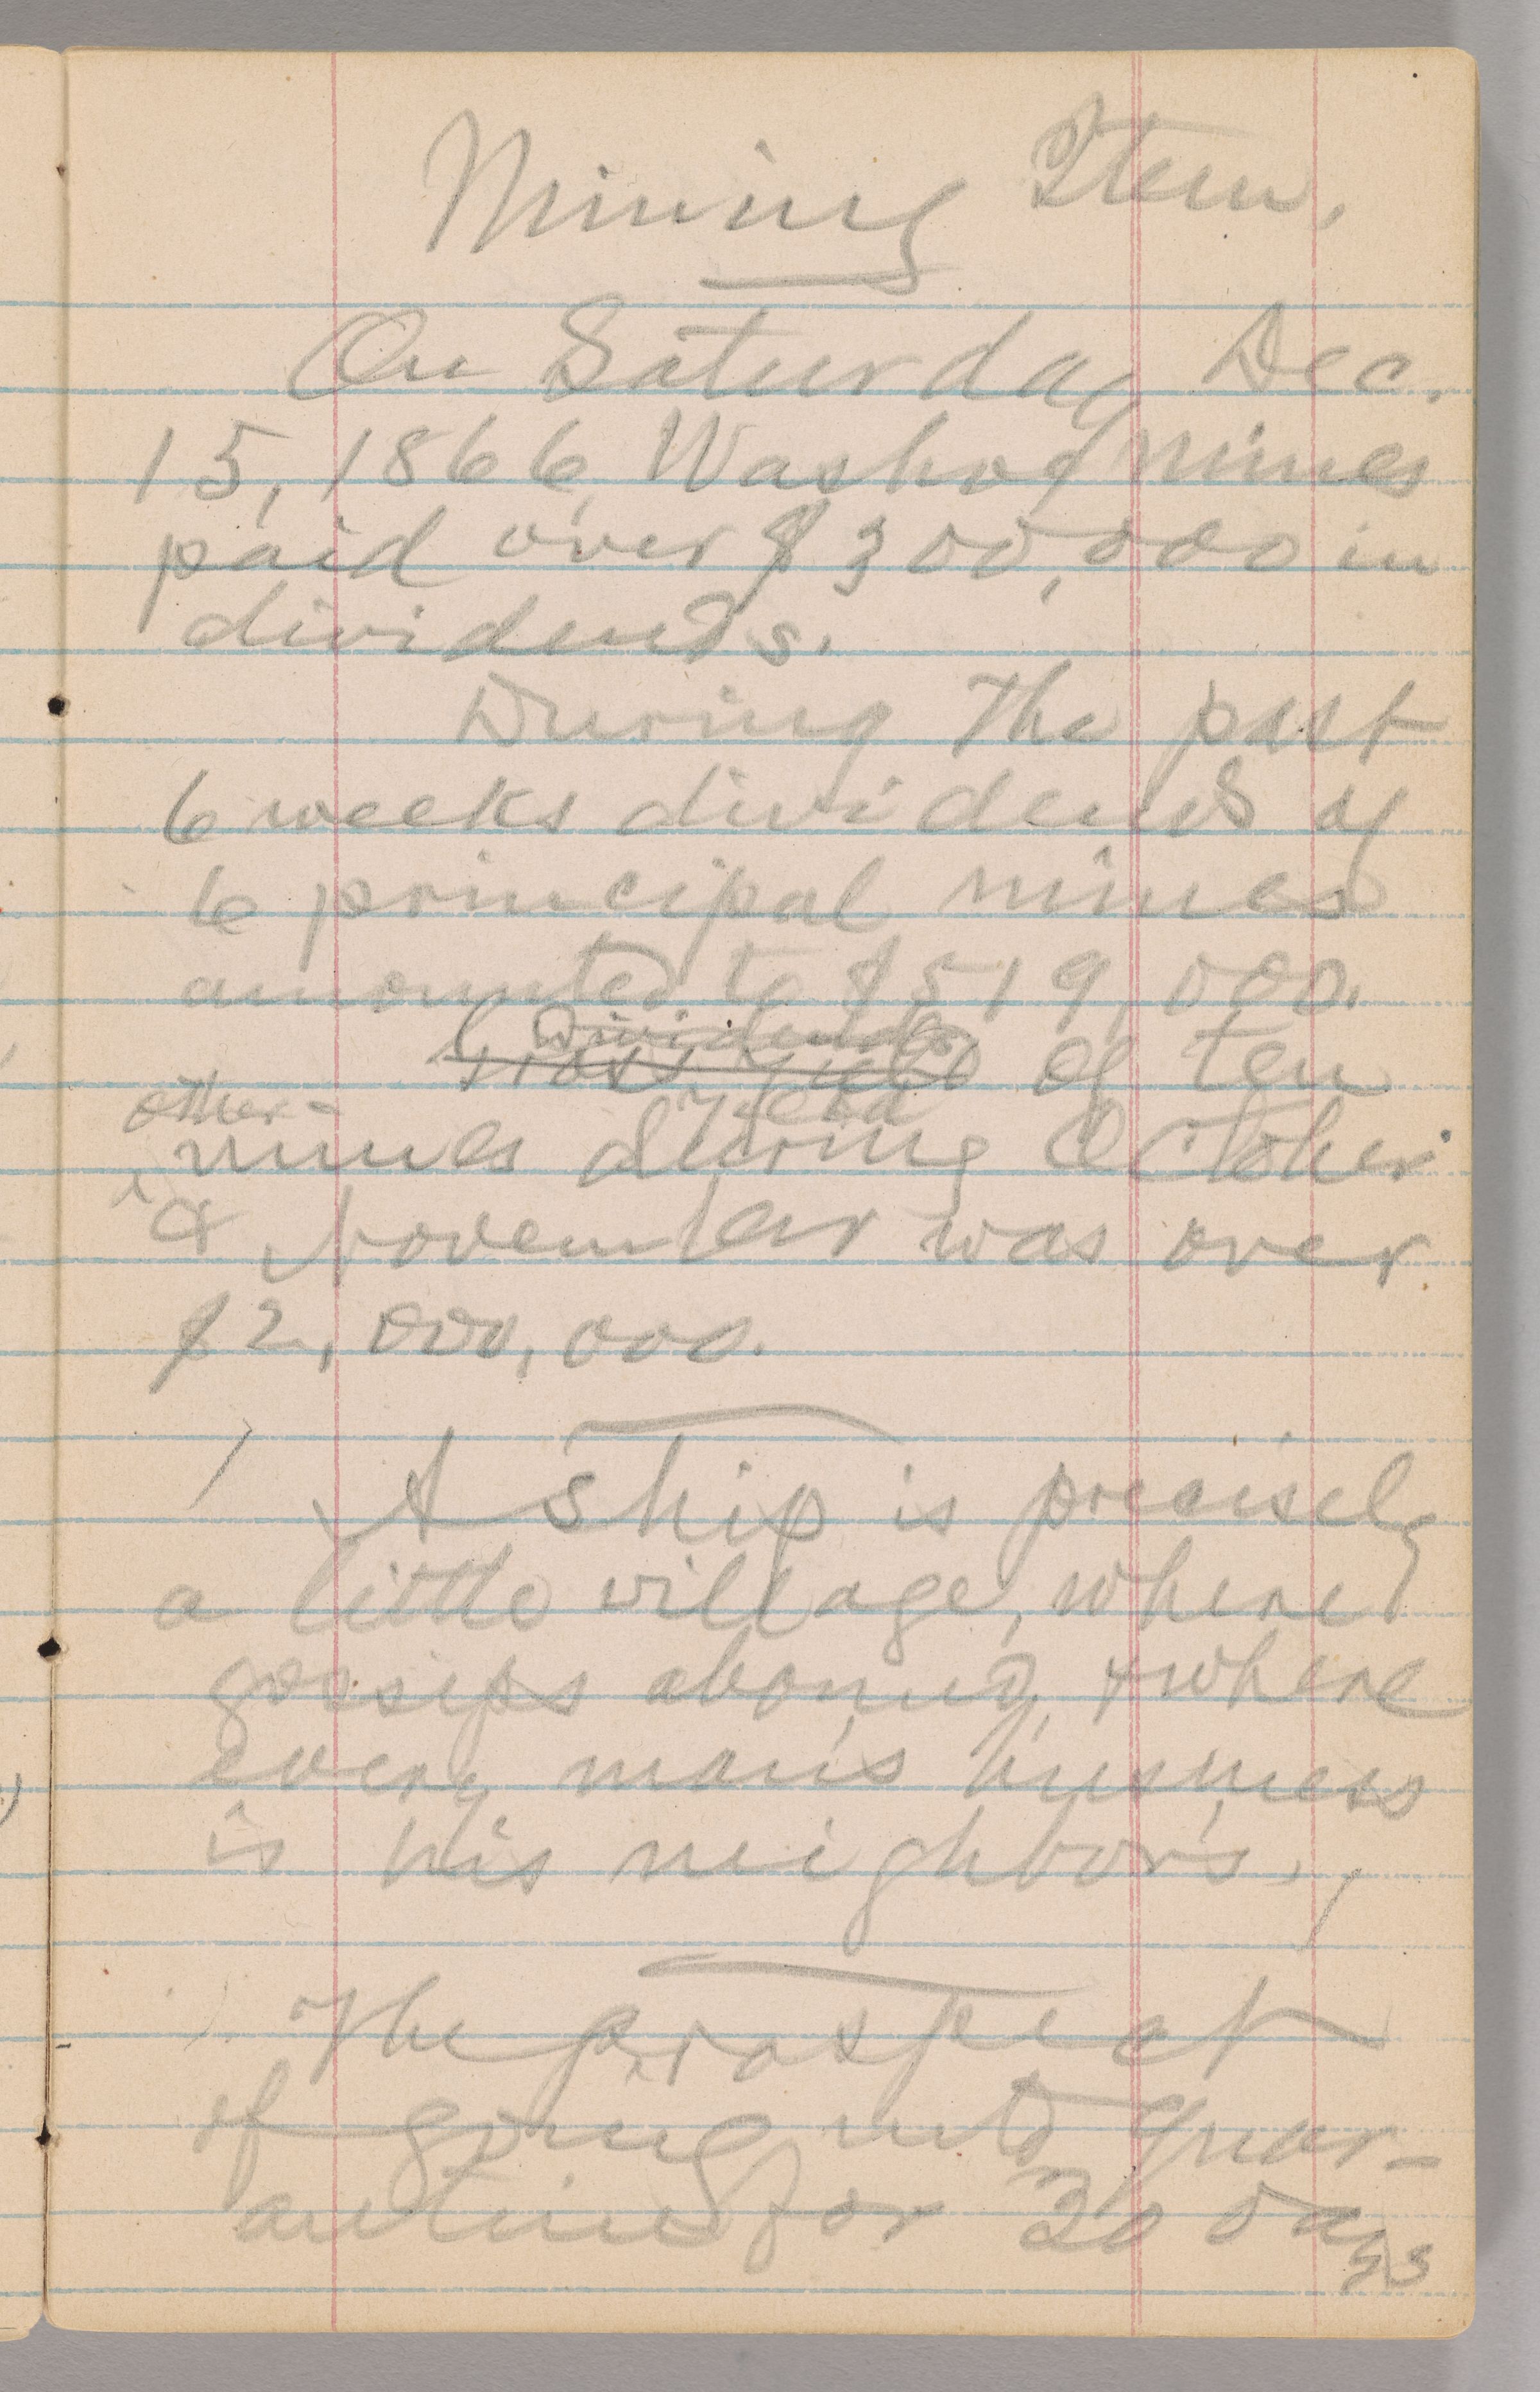 Mining Item.
On Saturday Dec.
15, 1866, Washoe mines
paid over $300,000 in
dividends.
During the past
6 weeks dividends of
6 principal mines
amounted to $519,000.
Dividends
Gross yield of ten
Yield
other
mines during October
& November was over
$2,000,000.
A ship is precisely
a little village, where
gossips abound, & where
every man's business
is his neighbor's.
The prospect
of going into quar-
antine for 30 days